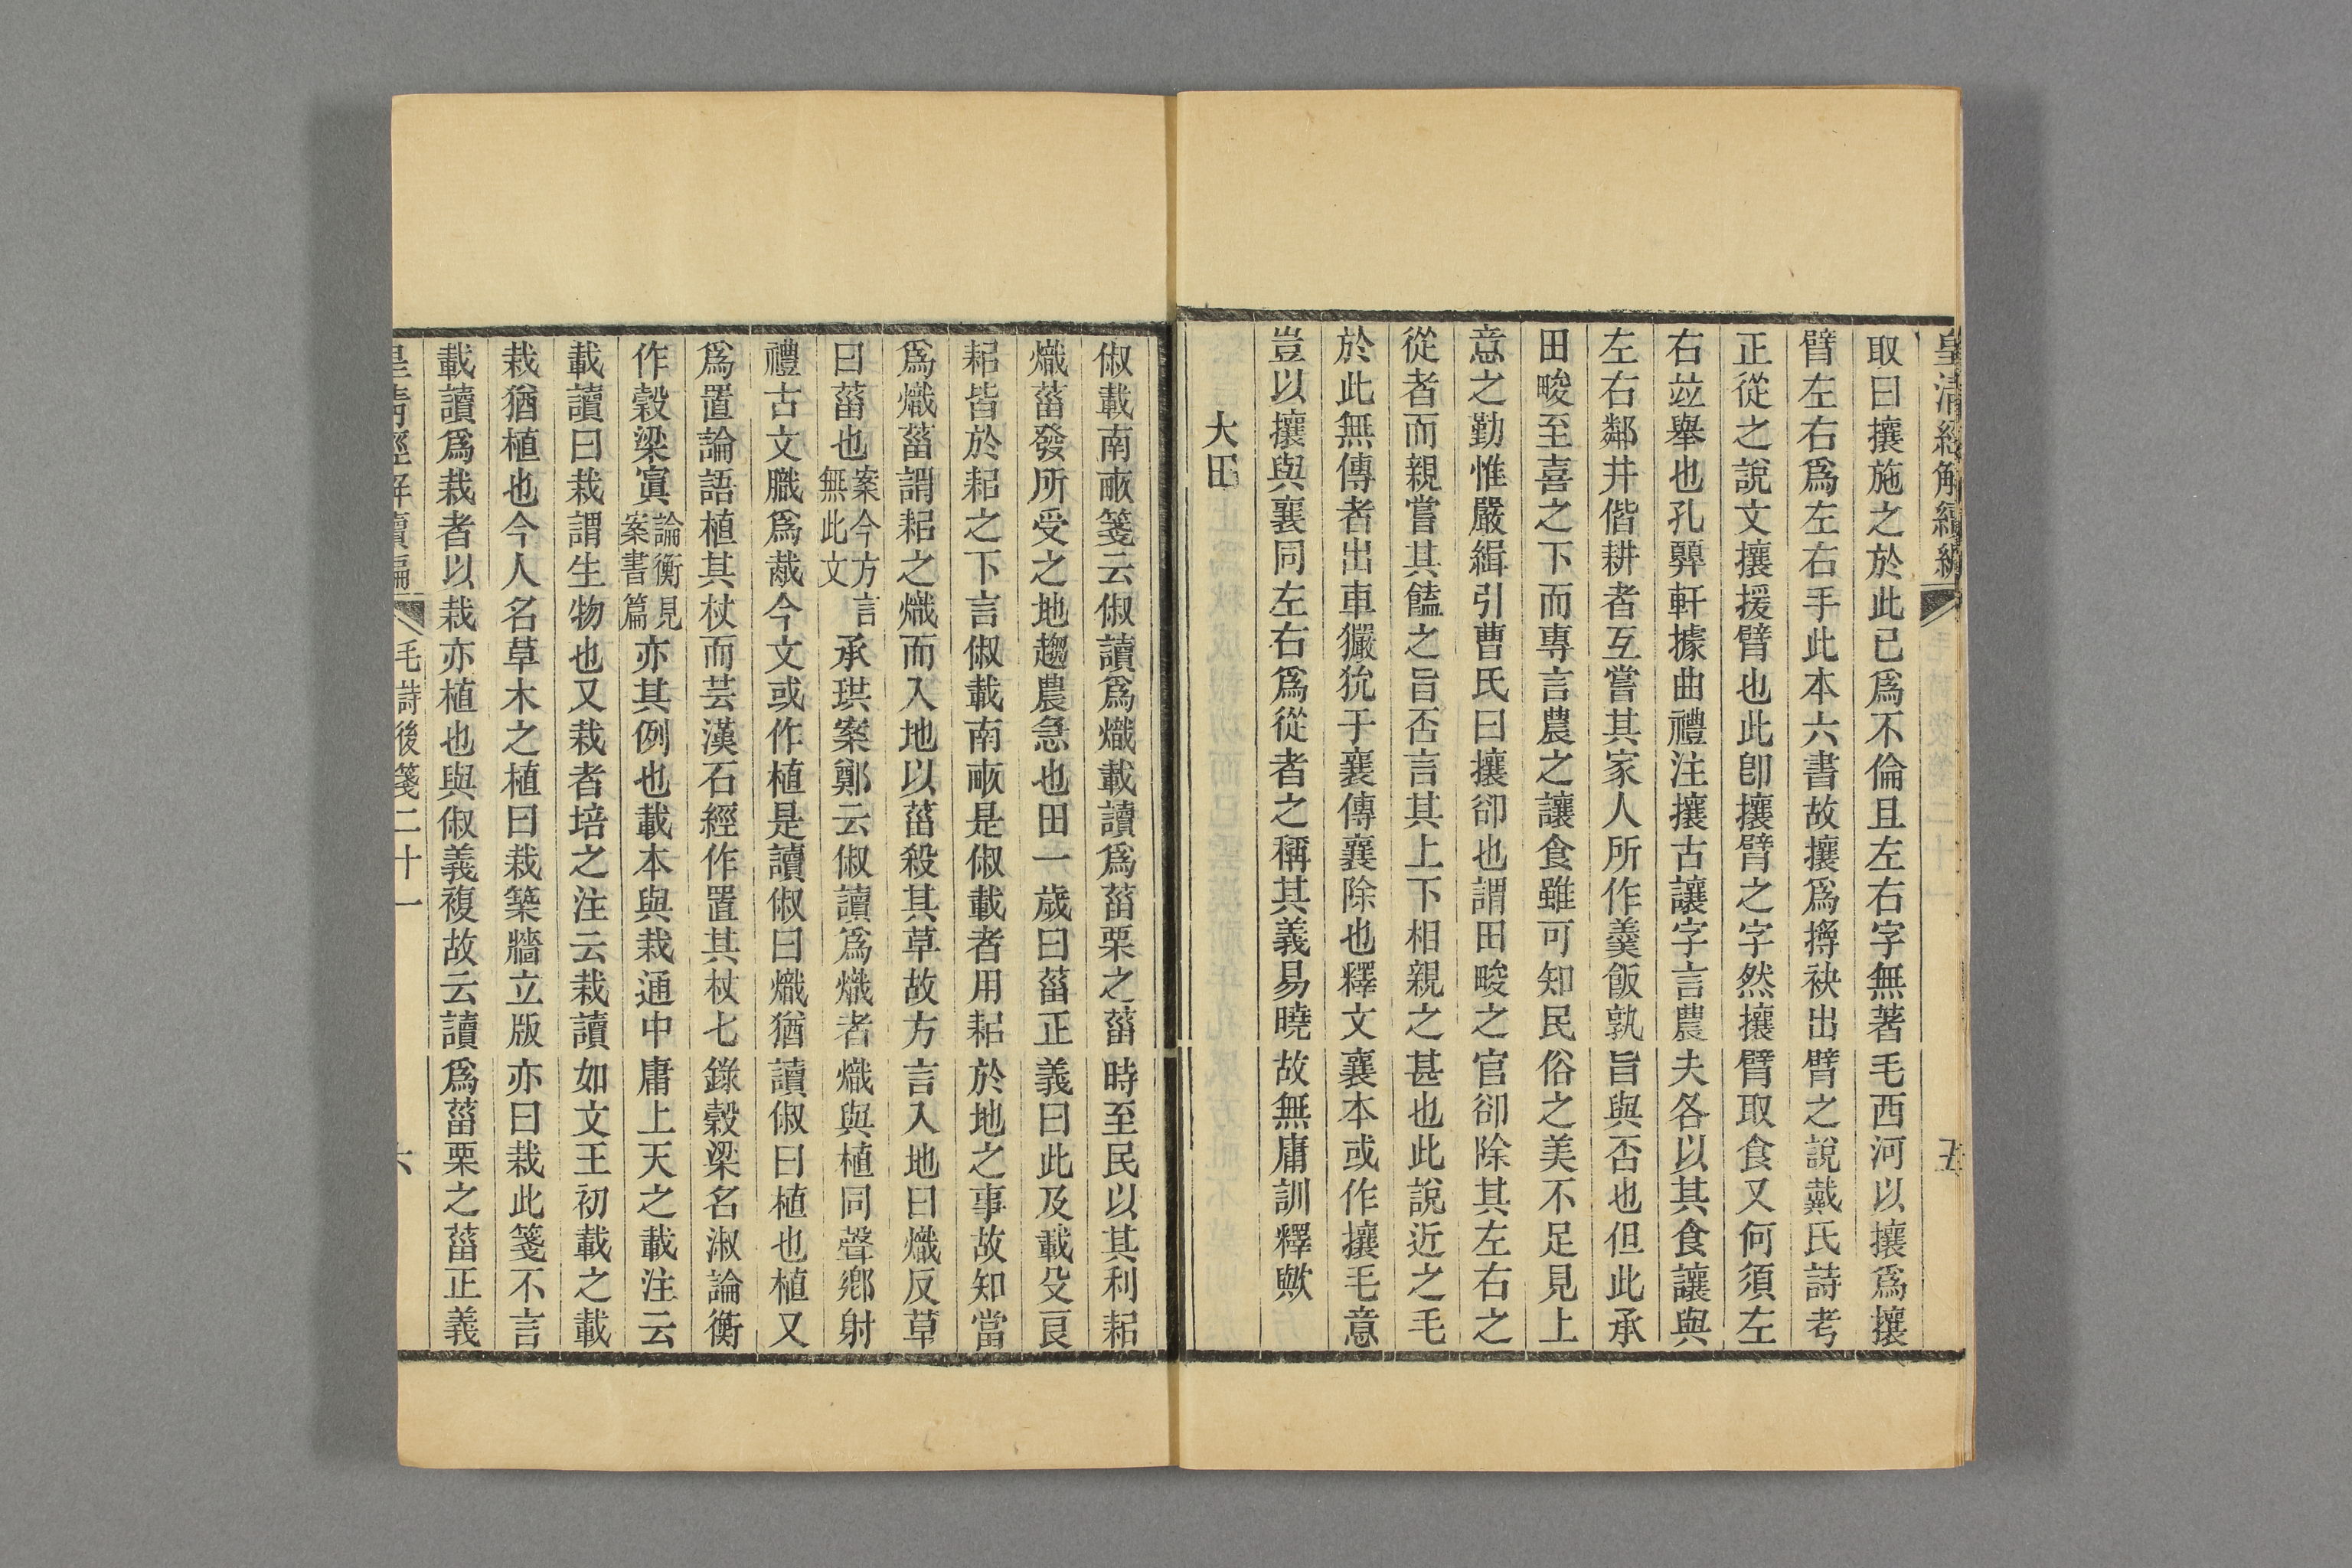 皇清經解續編
五
取曰攘施之於此已爲不倫且左右字無著毛西河以攘爲攘
臂左右爲左右手此本六書故攘爲揎袂出臂之說戴氏詩考
正從之說文攘援臂也此卽攘臂之字然攘臂取食又何須左
右竝舉也孔顨軒據曲禮注攘古讓字言農夫各以其食讓與
左右鄰井偕耕者互嘗其家人所作羹飯孰旨與否也但此承
田畯至喜之下而專言農之讓食雖可知民俗之美不足見上
意之勤惟嚴緝引曹氏曰攘卻也謂田畯之官卻除其左右之
從者而親嘗其饁之旨否言其上下相親之甚也此說近之毛
於此無傳者出車玁狁于襄傳襄除也釋文襄本或作攘毛意
豈以攘與襄同左右爲從者之稱其義易曉故無庸訓釋歟
大田
俶載南畝箋云俶讀爲熾載讀爲菑栗之菑時至民以其利耜
熾菑發所受之地趨農急也田一歲曰菑正義曰此及載芟良
耜皆於耜之下言俶載南畝是俶載者用耜於地之事故知當
爲熾菑謂耜之熾而入地以菑殺其草故方言入地曰熾反草
曰菑也案今方言無此文承珙案鄭云俶讀爲熾者熾與植同聲鄕射
禮古文膱爲胾今文或作植是讀俶曰熾猶讀俶曰植也植又
爲置論語植其杖而芸漢石經作置其杖七錄穀梁名淑論衡
作穀梁寘論衡見案書篇亦其例也載本與栽通中庸上天之載注云
載讀曰栽謂生物也又栽者培之注云栽讀如文王初載之載
栽猶植也今人名草木之植曰栽築牆立版亦曰栽此箋不言
載讀爲栽者以栽亦植也與俶義複故云讀爲菑栗之菑正義
皇清經解續編
毛詩後箋二十一
六